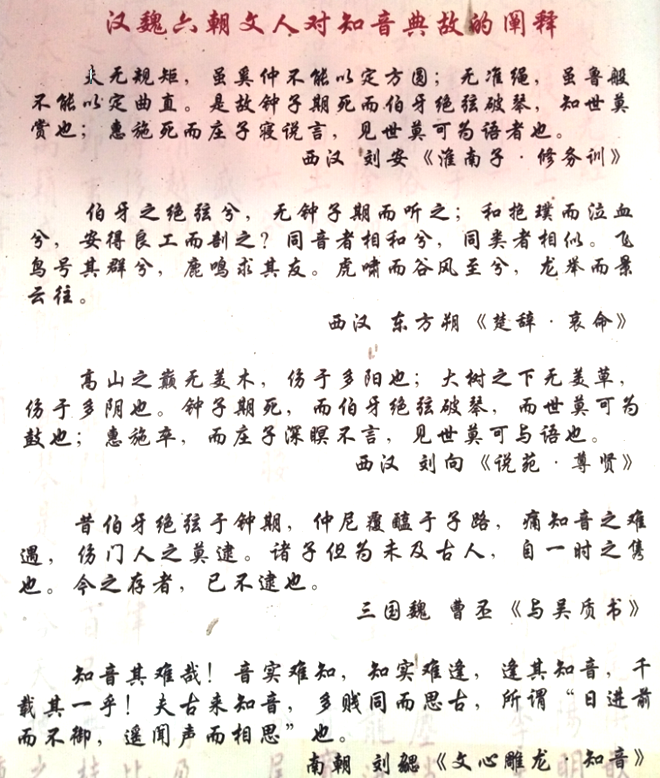 汉魏六朝文人对知音典故的阐释
夫无规矩，虽奚仲不能以定方圆；无准绳，虽鲁般
不能以定曲直。是故钟子期死而伯牙绝弦破琴，知世莫
赏也；惠施死而庄子寝说言，见世莫可为语者也。
西汉 刘安《淮南子·修务训》
伯牙之绝弦兮，无钟子期而听之；和抱璞而泣血
兮，安得良工而剖之？同音者相和兮，同类者相似。飞
鸟号其群兮，鹿鸣求其友。虎啸而谷风至兮，龙举而景
云往。
西汉 东方朔《楚辞·哀命》
高山之巅无美木，伤于多阳也；大树之下无美草，
伤于多阴也。钟子期死，而伯牙绝弦破琴，而世莫可为
鼓也；惠施卒，而庄子深瞑不言，见世莫可与语也。
西汉 刘向《说苑·尊贤》
昔伯牙绝弦于钟期，仲尼覆醢于子路，痛知音之难
遇，伤门人之莫逮。诸子但为未及古人，自一时之隽
也。今之存者，已不逮也。
三国魏 曹丕《与吴质书》
知音其难哉！音实难知，知实难逢，逢其知音，千
载其一乎！夫古来知音，多贱同而思古，所谓“日进前
而不御，遥闻声而相思”也。
南朝 刘勰《文心雕龙·知音》